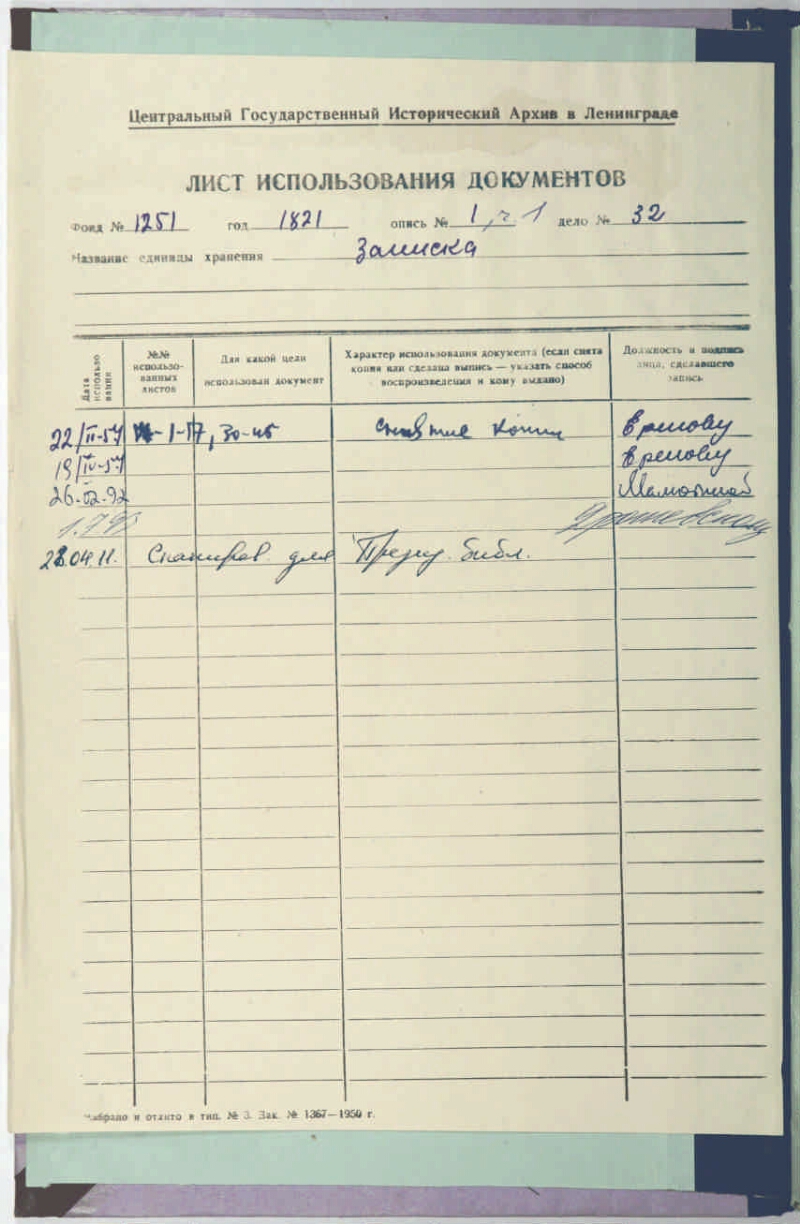 Центральный Государственный Исторический Архив в Ленинграде
ЛИСТ ИСПОЛЬЗОВАНИЯ ДОКУМЕНТОВ
Фонд № 1251 год 1821 опись № 1, ч. 1 дело № 32
Название единицы хранения Записка
Дата использования
№№ использованных листов
Для какой цели использован документ
Характер использования документа (если снята копия или сделана выпись — указать способ воспроизведения и кому выдано)
Должность и подпись лица, сделавшего запись
22/II-57 1-17, 30-45 снятие копии Ермолову
19/IV-57 Ермолову
26.02.92
1.7.93
28.04.11. Сканиров. для През. библ.
Набрано и отпато в тип. № 3. Зак. № 1367—1950 г.